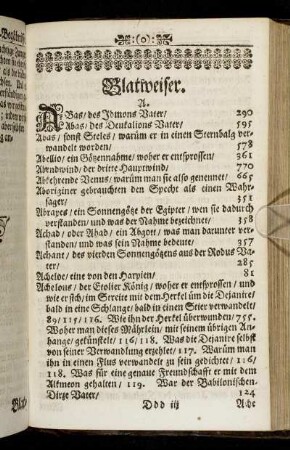 :(o):
Blatweiser.
A.
ABas/ des Idmons Vater/ 290
Abas/ des Deukalions Vater/ 595
Abas/ sonst Steles/ warüm er in einen Sternbalg ver-
wandelt worden/ 578
Abellio/ ein Götzennahme/ woher er entsprossen/ 361
Abendwind/ der dritte Hauptwind/ 770
Abkehrende Venus/ warüm man sie also genennet/ 665
Aboriginer gebrauchten den Specht als einen Wahr-
sager/ 351
Abraxes/ ein Sonnengötze der Egipter/ wen sie dadurch
verstanden/ und was der Nahme bezeichnet/ 358
Achad/ oder Ahad/ ein Abgott/ was man darunter ver-
standen/ und was sein Nahme bedeute/ 357
Achant/ des vierden Sonnengötzens aus der Rodus Va-
ter/ 285
Acheloe/ eine von den Harpien/ 81
Achelous/ der Etolier König/ woher er entsprossen/ und
wie er sich/ im Streite mit dem Herkel üm die Dejanire/
bald in eine Schlange/ bald in einen Stier verwandelt/
89/115/116. Wie ihn der Herkel überwunden/ 755.
Woher man dieses Mährlein/ mit seinem übrigen An-
hange/ gekünstelt/ 116/118. Was die Dejanire selbst
von seiner Verwandlung erzehlet/ 117. Warüm man
ihn in einen Flus verwandelt zu sein gedichtet/ 116/
118. Was für eine genaue Freundschafft er mit dem
Alkmeon gehalten/ 119. War der Babilonischen
Dirge Vater/ 124
Ddd iij Ache